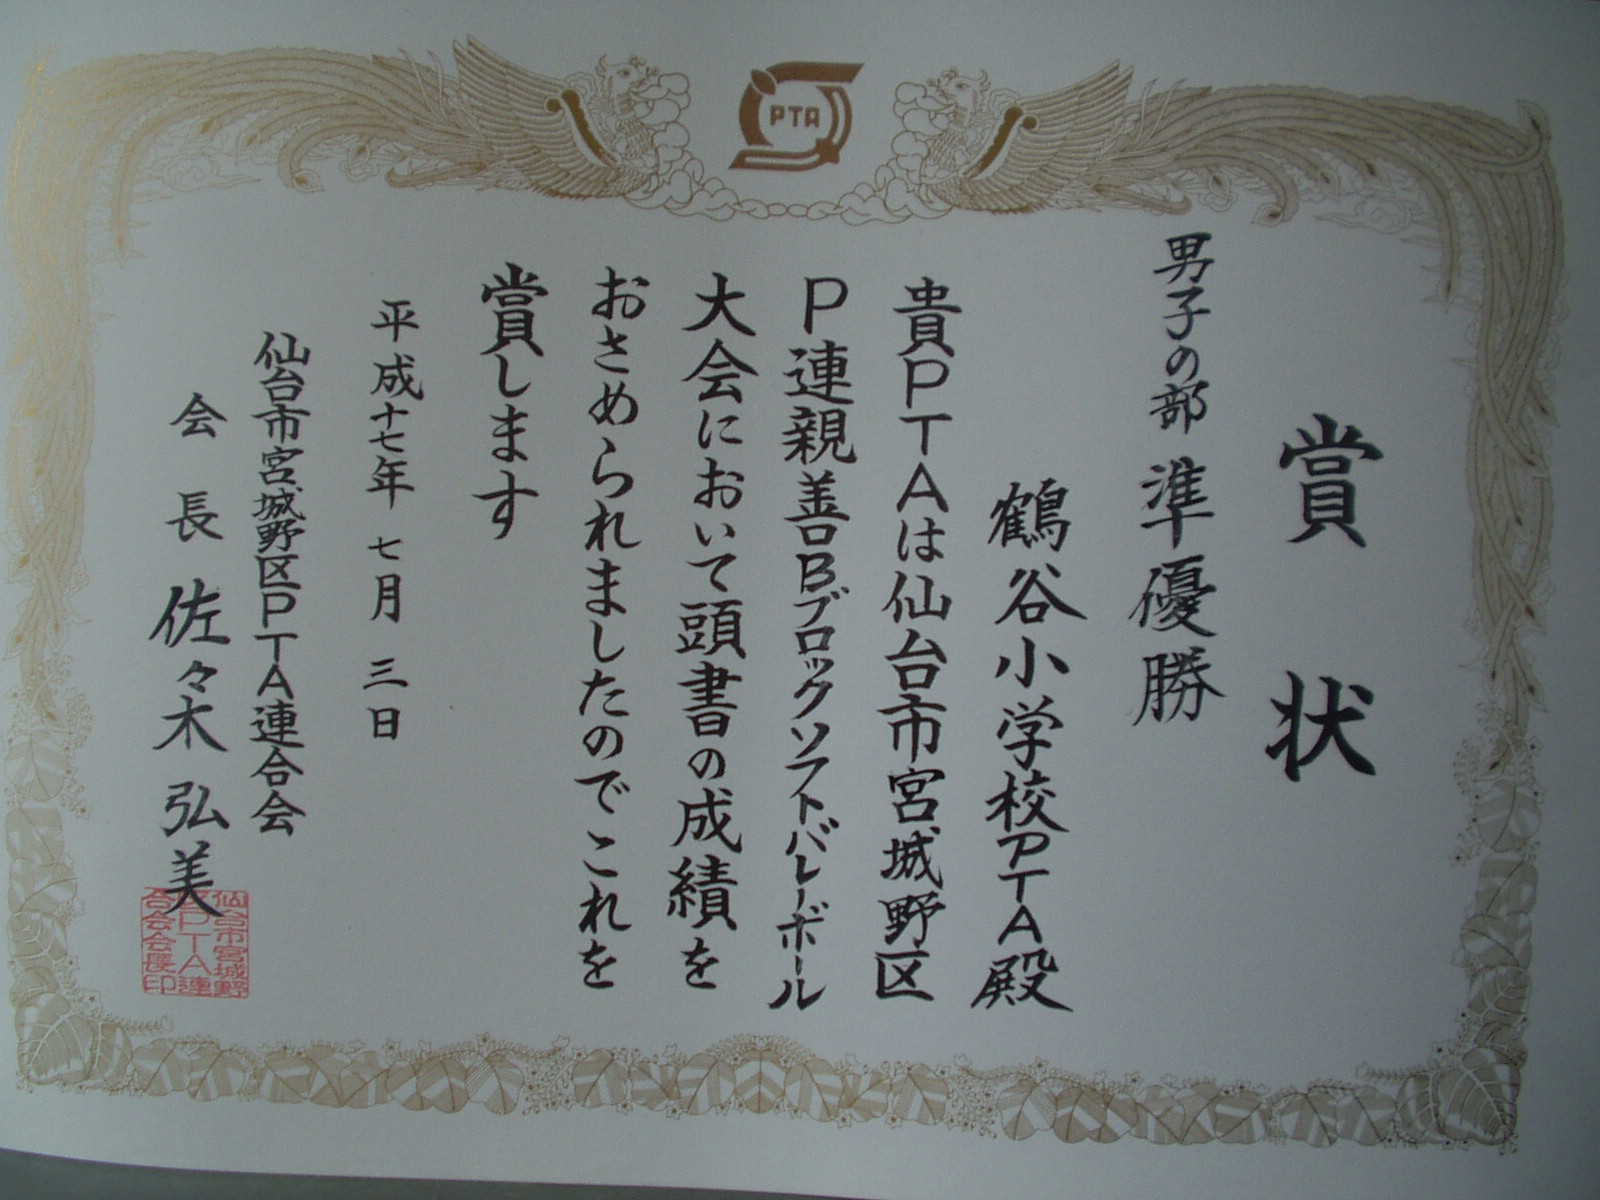 PTA
賞状
男子の部 準優勝
鶴谷小学校PTA殿
貴PTAは仙台市宮城野区
P連親善Bブロックソフトバレーボール
大会において頭書の成績を
おさめられましたのでこれを
賞します
平成十七年 七月 三日
仙台市宮城野区PTA連合会
会長 佐々木弘美
仙台市宮城野
区PTA連
合会会長印